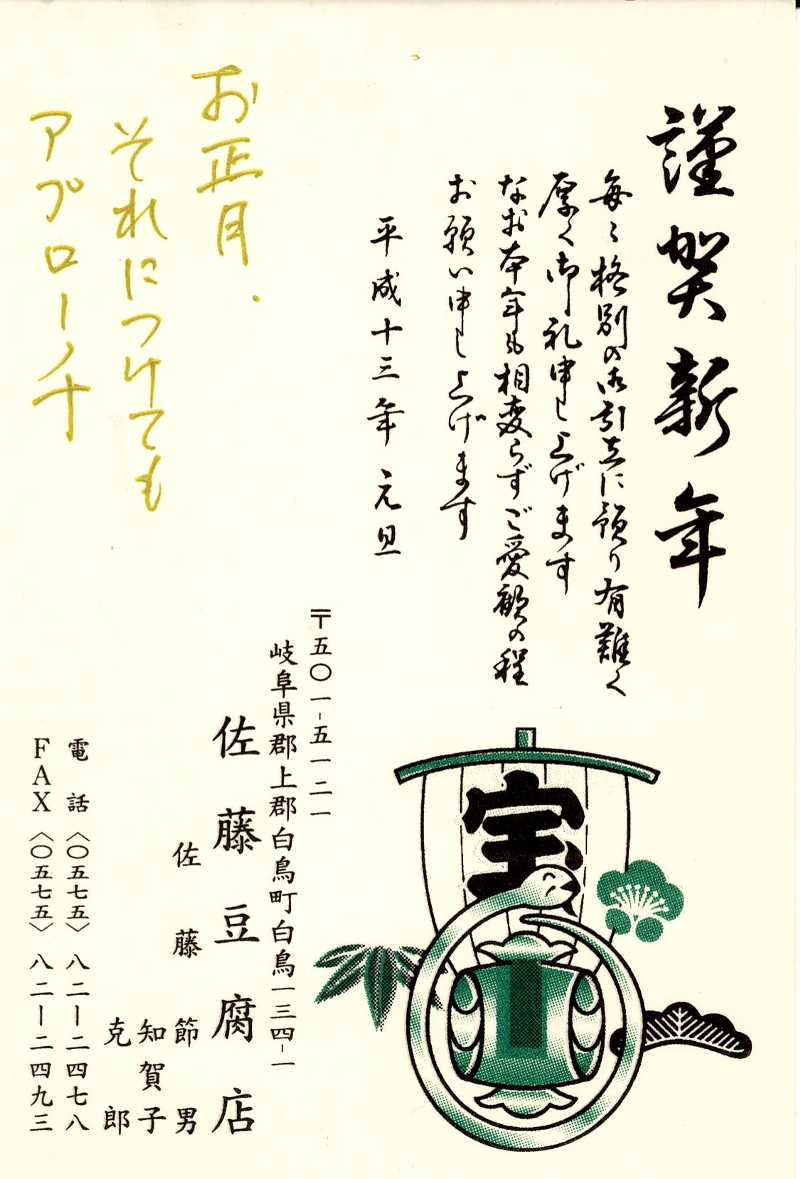 謹賀新年
毎々格別の御引立に預り有難く
厚く御礼申し上げます
なお本年も相変らずご愛顧の程
お願い申し上げます
平成十三年 元旦
〒五〇一-五一二一
岐阜県郡上郡白鳥町白鳥一三四-一
佐藤豆腐店
佐藤節男
知賀子
克郎
電話〈〇五七五〉八二-二四七八
FAX〈〇五七五〉八二-二四九三
お正月、
それにつけても
アプローチ
宝